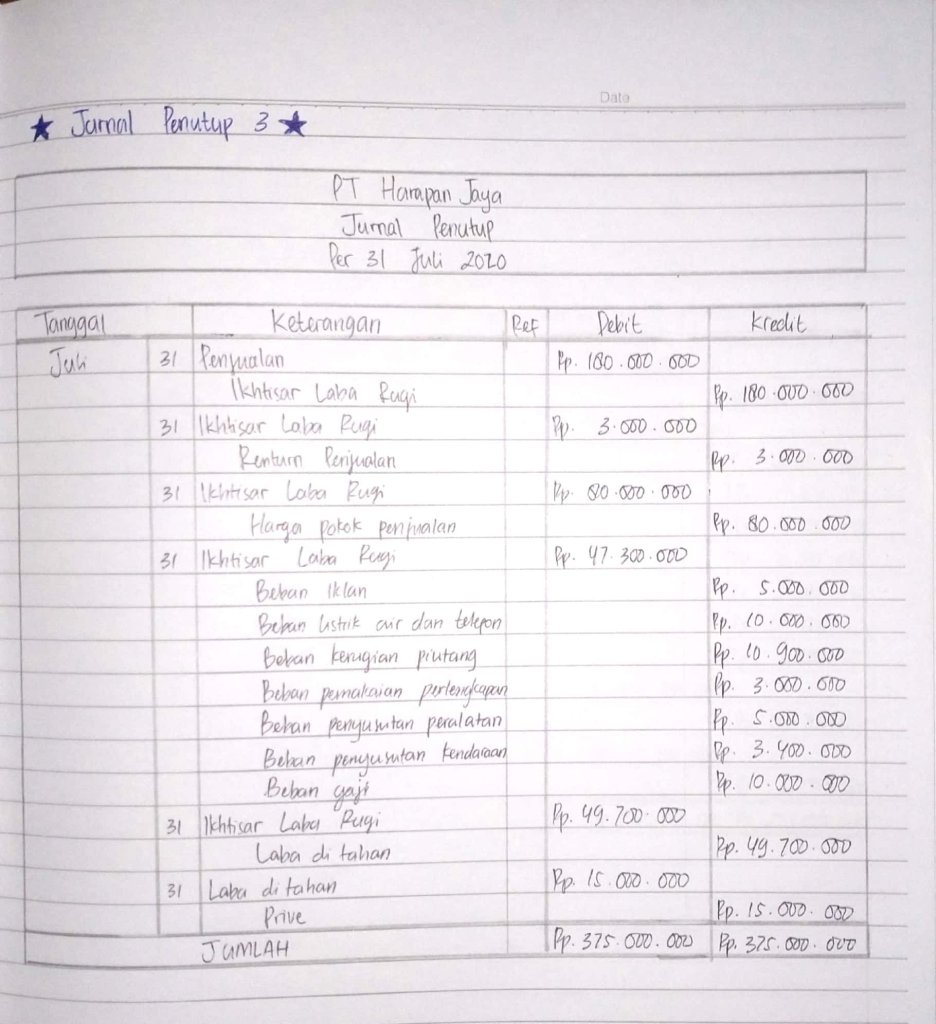 Date
★ Jurnal Penutup 3 ★
PT Harapan Jaya
Jurnal Penutup
Per 31 Juli 2020
Tanggal Keterangan Ref Debit Kredit
Juli 31 Penjualan Rp. 180.000.000
Ikhtisar Laba Rugi Rp. 180.000.000
31 Ikhtisar Laba Rugi Rp. 3.000.000
Renturn Penjualan Rp. 3.000.000
31 Ikhtisar Laba Rugi Rp. 80.000.000
Harga pokok penjualan Rp. 80.000.000
31 Ikhtisar Laba Rugi Rp. 47.300.000
Beban Iklan Rp. 5.000.000
Beban listrik air dan telepon Rp. 10.000.000
Beban kerugian piutang Rp. 10.900.000
Beban pemakaian perlengkapan Rp. 3.000.000
Beban penyusutan peralatan Rp. 5.000.000
Beban penyusutan kendaraan Rp. 3.400.000
Beban gaji Rp. 10.000.000
31 Ikhtisar Laba Rugi Rp. 49.700.000
Laba di tahan Rp. 49.700.000
31 Laba di tahan Rp. 15.000.000
Prive Rp. 15.000.000
JUMLAH Rp. 375.000.000 Rp. 375.000.000